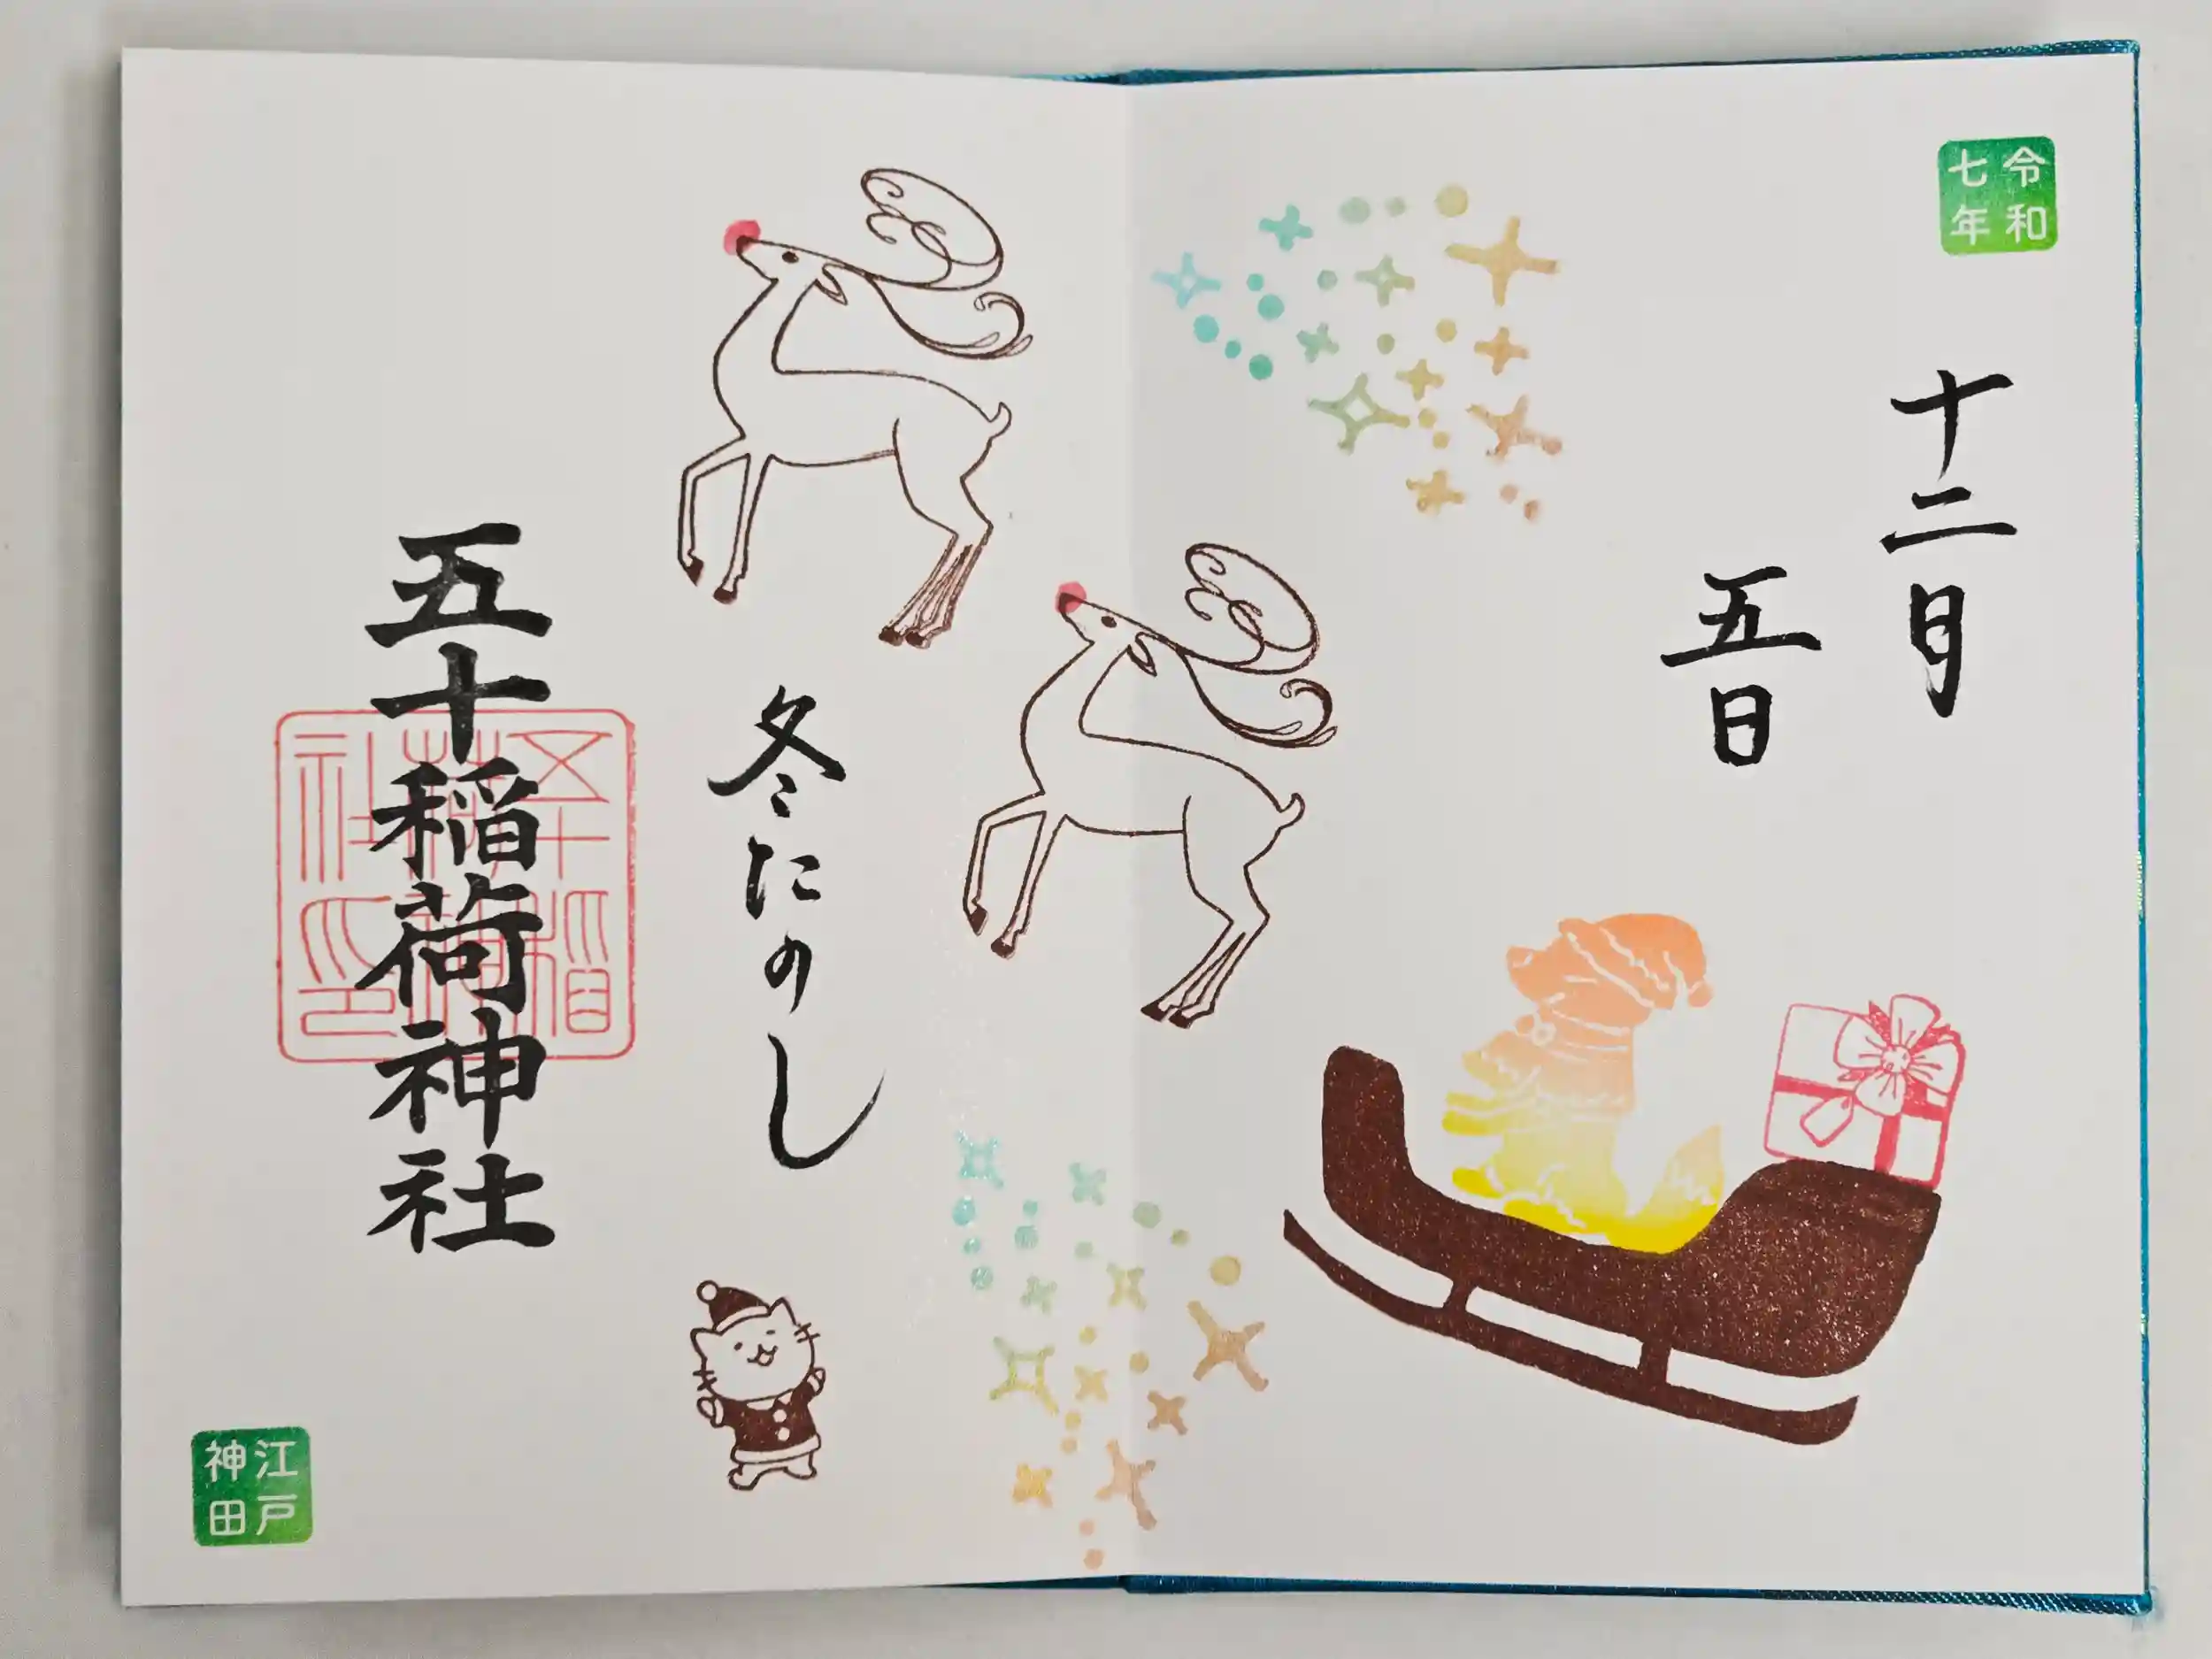 令和
七年
十二月
五日
冬たのし
五十稲荷神社
五十稲
荷神
社印
江戸
神田